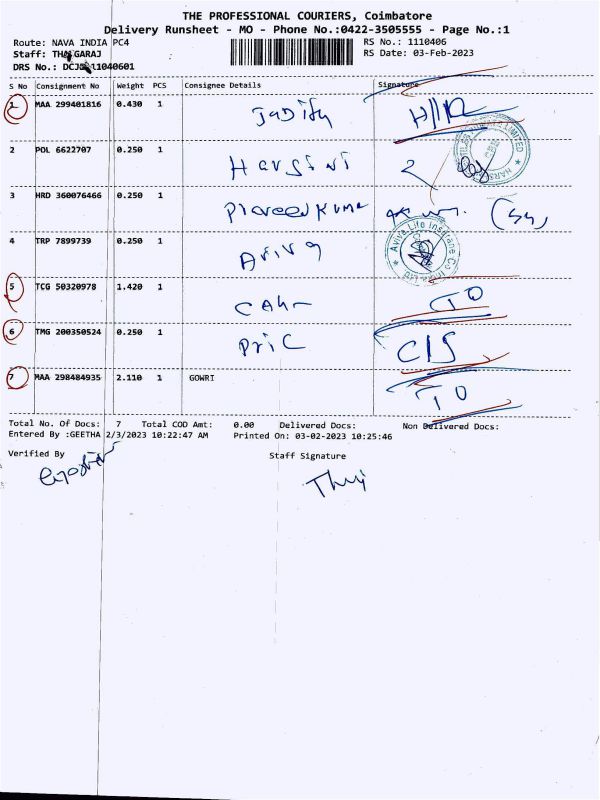 THE PROFESSIONAL COURIERS, Coimbatore
Delivery Runsheet - MO - Phone No.:0422-3505555 - Page No.:1
Route: NAVA INDIA PC4 RS No.: 1110406
Staff: THAIGARAJ RS Date: 03-Feb-2023
DRS No.: 1040601
S No Consignment No Weight PCS Consignee Details Signature
1 MAA 299401816 0.430 1
2 POL 6622707 0.250 1 Harsini
3 HRD 360076466 0.250 1 Praveen Kumar
4 TRP 7899739 0.250 1 Aviva
Aviva Life
5 TCG 50320978 1.420 1 TO
6 TMG 200350524 0.250 1 Pric C/S
7 MAA 298484935 2.110 1 GOWRI TO
Total No. Of Docs: 7 Total COD Amt: 0.00 Delivered Docs: Non Delivered Docs:
Entered By :GEETHA 2/3/2023 10:22:47 AM Printed On: 03-02-2023 10:25:46
Verified By Staff Signature